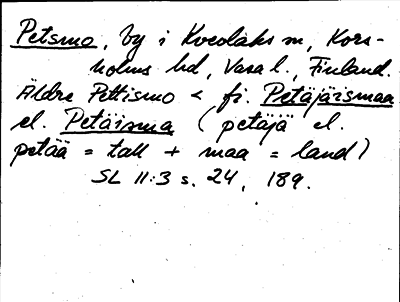 Petsmo, by i Kveolaks sn, Kors-
holms hd, Vasa l., Finland.
Äldre Pettismo < fi. Petäjäismaa
el. Petäisma (petäjä el.
petää = tall + maa = land)
SL 11:3 s. 24, 189.